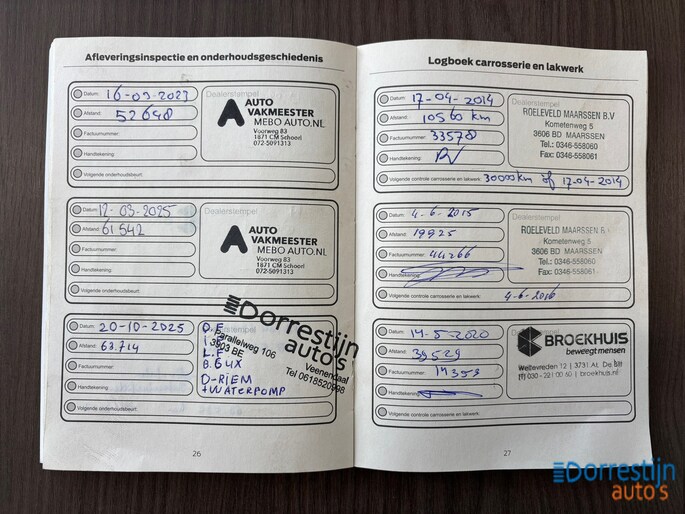 Afleveringsinspectie en onderhoudsgeschiedenis
Datum: 16-03-2023
Afstand: 52648
Factuurnummer:
Handtekening:
Volgende onderhoudsbeurt:
Dealerstempel
AUTO
VAKMEESTER
MEBO AUTO.NL
Voorweg 83
1871 CM Schoorl
072-5091313
Datum: 12-03-2025
Afstand: 61542
Factuurnummer:
Handtekening:
Volgende onderhoudsbeurt:
Dealerstempel
AUTO
VAKMEESTER
MEBO AUTO.NL
Voorweg 83
1871 CM Schoorl
072-5091313
Datum: 20-10-2025
Afstand: 63.714
Factuurnummer:
Handtekening:
Volgende onderhoudsbeurt:
O.F
I.F
L.F
B.GUX
D-RIEM
+WATERPOMP
Dorrestijn
auto's
Parallelweg 106
3903 BE
Veenendaal
Tel 0618520998
26
Logboek carrosserie en lakwerk
Datum: 17-04-2014
Afstand: 10560 km
Factuurnummer: 33578
Handtekening:
Volgende controle carrosserie en lakwerk: 30000km of 17-04-2014
Dealerstempel
ROELEVELD MAARSSEN B.V
Kometenweg 5
3606 BD MAARSSEN
Tel.: 0346-558060
Fax: 0346-558061
Datum: 4-6-2015
Afstand: 19925
Factuurnummer: 44266
Handtekening:
Volgende controle carrosserie en lakwerk: 4-6-2016
Dealerstempel
ROELEVELD MAARSSEN B.V
Kometenweg 5
3606 BD MAARSSEN
Tel.: 0346-558060
Fax: 0346-558061
Datum: 14-5-2020
Afstand: 39529
Factuurnummer: 14353
Handtekening:
Volgende controle carrosserie en lakwerk:
Dealerstempel
BROEKHUIS
beweegt mensen
Weltevreden 12 | 3731 AL De Bilt
broekhuis.nl
27
Dorrestijn
auto's